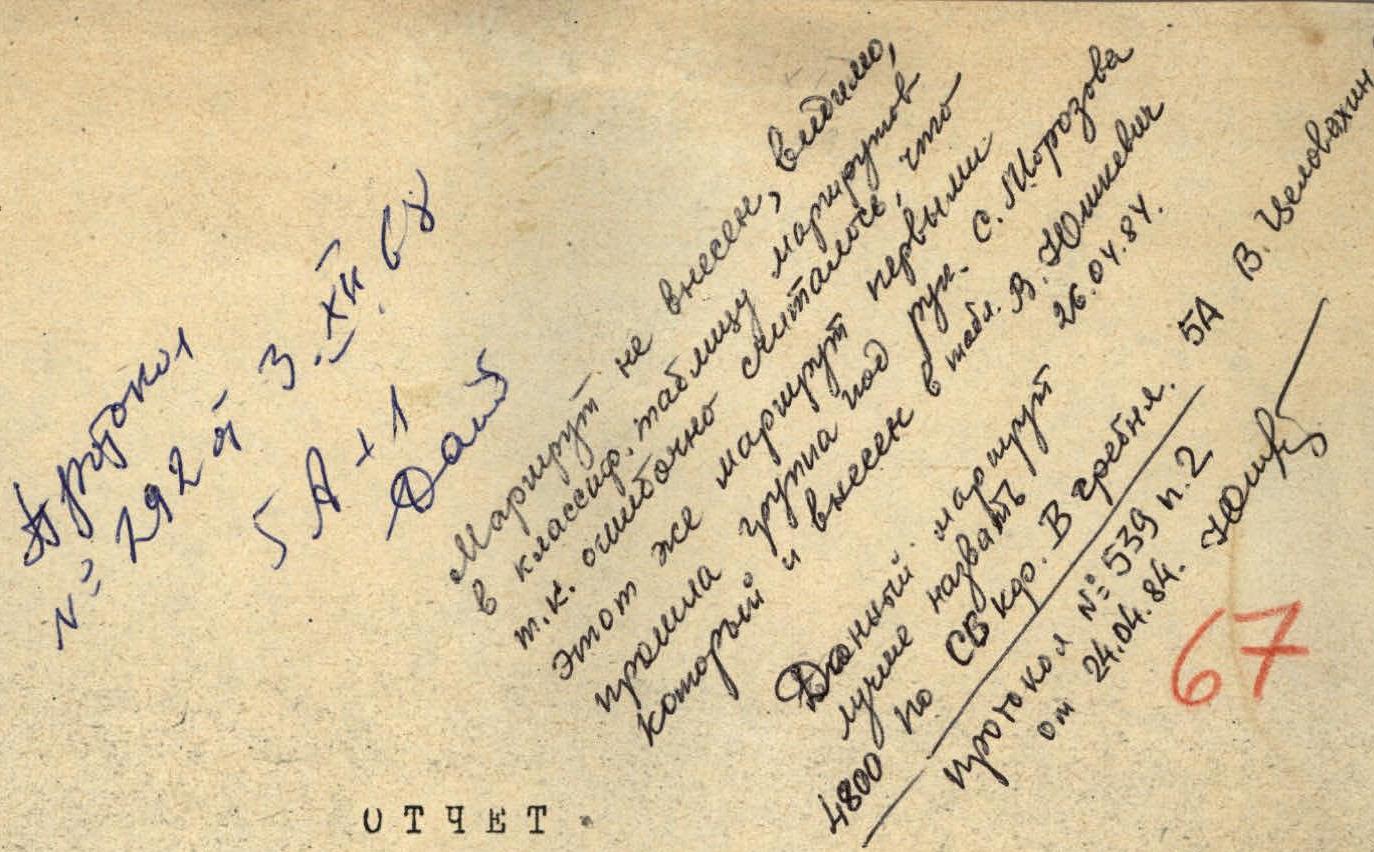 Протокол
№ 292 от 3.XII 68
5А + 1
Маршрут не внесен, видимо,
в классиф. таблицу маршрутов
т.к. ошибочно считалось, что
этот же маршрут первыми
прошла группа под рук. С. Морозова
который и внесен в табл. В. Юшкевич
26.04.84.
Данный маршрут
лучше назвать
4800 по СВ кдо. В гребня. 5А В. Целовахин
протокол № 539 п.2
от 24.04.84.
67
ОТЧЕТ